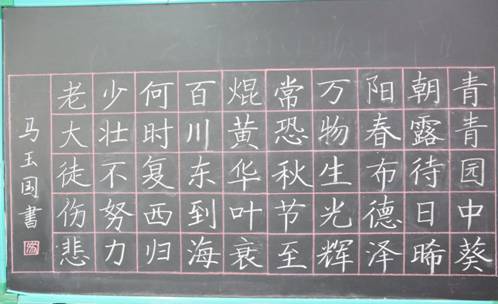 青青园中葵
朝露待日晞
阳春布德泽
万物生光辉
常恐秋节至
焜黄华叶衰
百川东到海
何时复西归
少壮不努力
老大徒伤悲
马玉国書